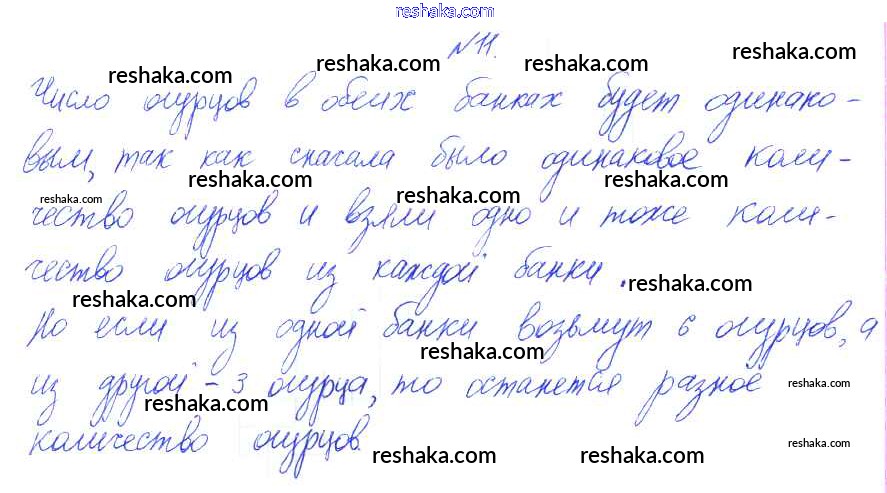 reshaka.com
№ 11.
reshaka.com reshaka.com reshaka.com reshaka.com
Число огурцов в обеих банках будет одинако-
вым, так как сначала было одинаковое коли-
reshaka.com reshaka.com reshaka.com reshaka.com
чество огурцов и взяли одно и тоже коли-
чество огурцов из каждой банки.
reshaka.com reshaka.com
Но если из одной банки возьмут 6 огурцов, а
reshaka.com
из другой - 3 огурца, то останется разное
reshaka.com reshaka.com
количество огурцов.
reshaka.com reshaka.com reshaka.com